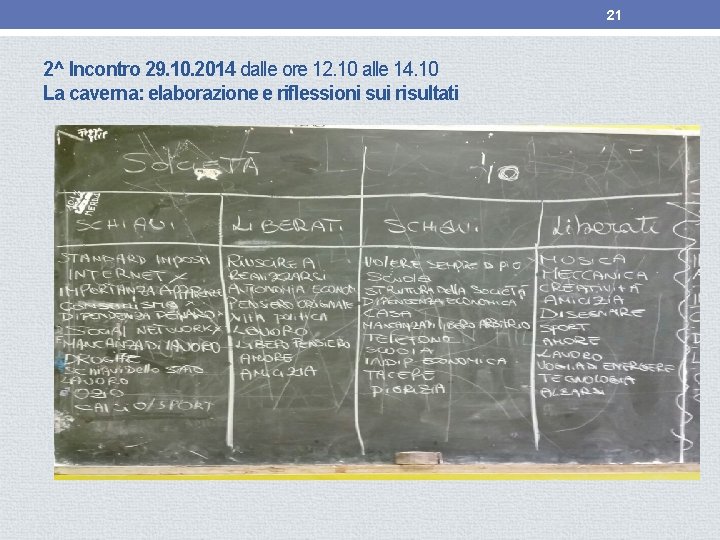 21
2^ Incontro 29.10.2014 dalle ore 12.10 alle 14.10
La caverna: elaborazione e riflessioni sui risultati
SOCIETÀ
IO
SCHIAVI
LIBERATI
SCHIAVI
Liberati
STANDARD IMPOSTI
INTERNET X
IMPORTANZA APPARENZE
CONSUMISMO
DIPENDENZA DENARO
SOCIAL NETWORK
MANCANZA DI LAVORO
DROGHE
SCHIAVI dello STATO
LAVORO
OZIO
CALCIO/SPORT
RIUSCIRE A
REALIZZARSI
AUTONOMIA ECONOM
PENSIERO ORIGINALE
VITA POLITICA
LAVORO
LIBERO PENSIERO
AMORE
AMICIZIA
VOLERE SEMPRE DI PIÙ
SCUOLA
STRUTTURA della SOCIETÀ
DIPENDENZA ECONOMICA
CASA
MANCANZA DI LIBERO ARBITRIO
TELEFONO
SCUOLA
INDIP. ECONOMICA
TACERE
PIGRIZIA
MUSICA
MECCANICA
CREATIVITÀ
AMICIZIA
DISEGNARE
SPORT
AMORE
LAVORO
VOGLIA DI EMERGERE
TECNOLOGIA
ALZARSI